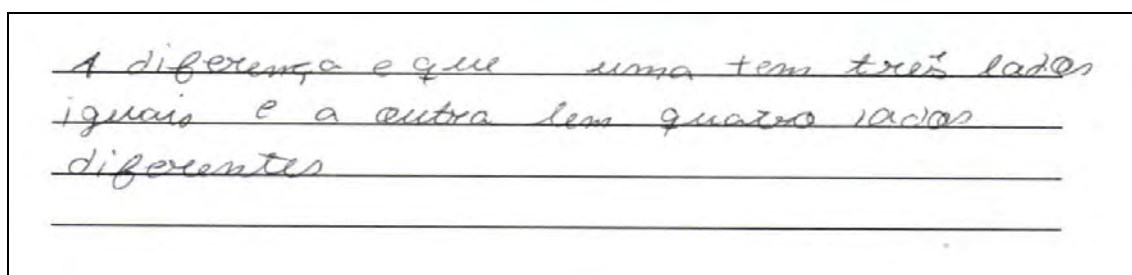 A diferença e que uma tem três lados
iguais e a outra tem quatro lados
diferentes